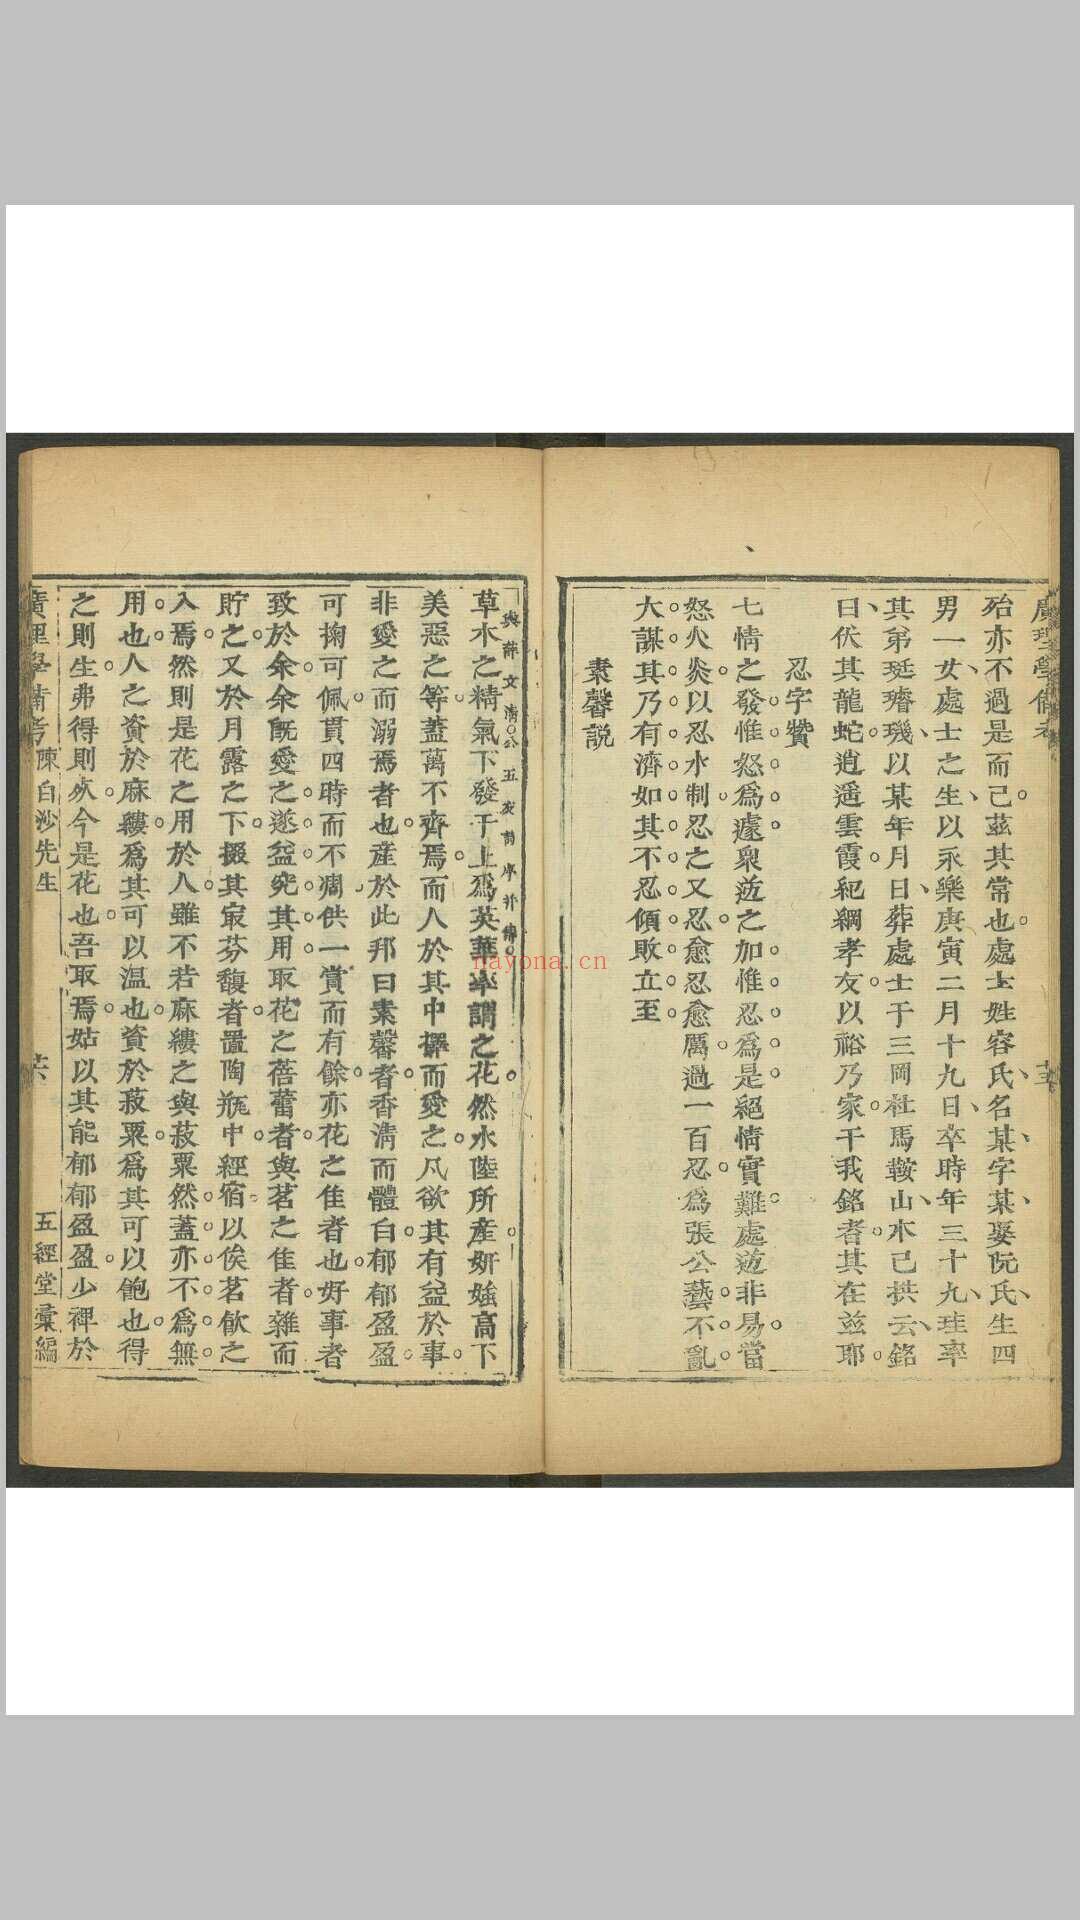 廣理學備考
殆亦不過是而已茲其常也處士姓容氏名某字某娶阮氏生四
男一女處士之生以永樂庚寅二月十九日卒時年三十九珪率
其弟珽璿璣以某年月日葬處士于三岡社馬鞍山木已拱云銘
曰伏其龍蛇逍遥雲霞紀綱孝友以裕乃家干我銘者其在茲耶
忍字贊
七情之發惟怒為遽衆逆之加惟忍為是絕情實難處逆非易當
怒火炎以忍水制忍之又忍愈忍愈厲過一百忍為張公藝不亂
大謀其乃有濟如其不忍傾敗立至
素馨説
與薛文清公
草木之精氣下發于上為英華率謂之花然水陸所産妍媸高下
美惡之等蓋萬不齊焉而人於其中擇而愛之凡欲其有益於事
非愛之而溺焉者也産於此邦曰素馨者香清而體白郁郁盈盈
可掬可佩貫四時而不凋供一賞而有餘亦花之佳者也好事者
致於余余既愛之遂益究其用取花之蓓蕾者與茗之佳者雜而
貯之又於月露之下掇其㝡芬馥者置陶瓶中經宿以俟茗飲之
入焉然則是花之用於人雖不若麻縷之與菽粟然蓋亦不為無
用也人之資於麻縷為其可以温也資於菽粟為其可以飽也得
之則生弗得則死今是花也吾取焉姑以其能郁郁盈盈少裨於
廣理學備考 陳白沙先生 五經堂彙編
nayona.cn